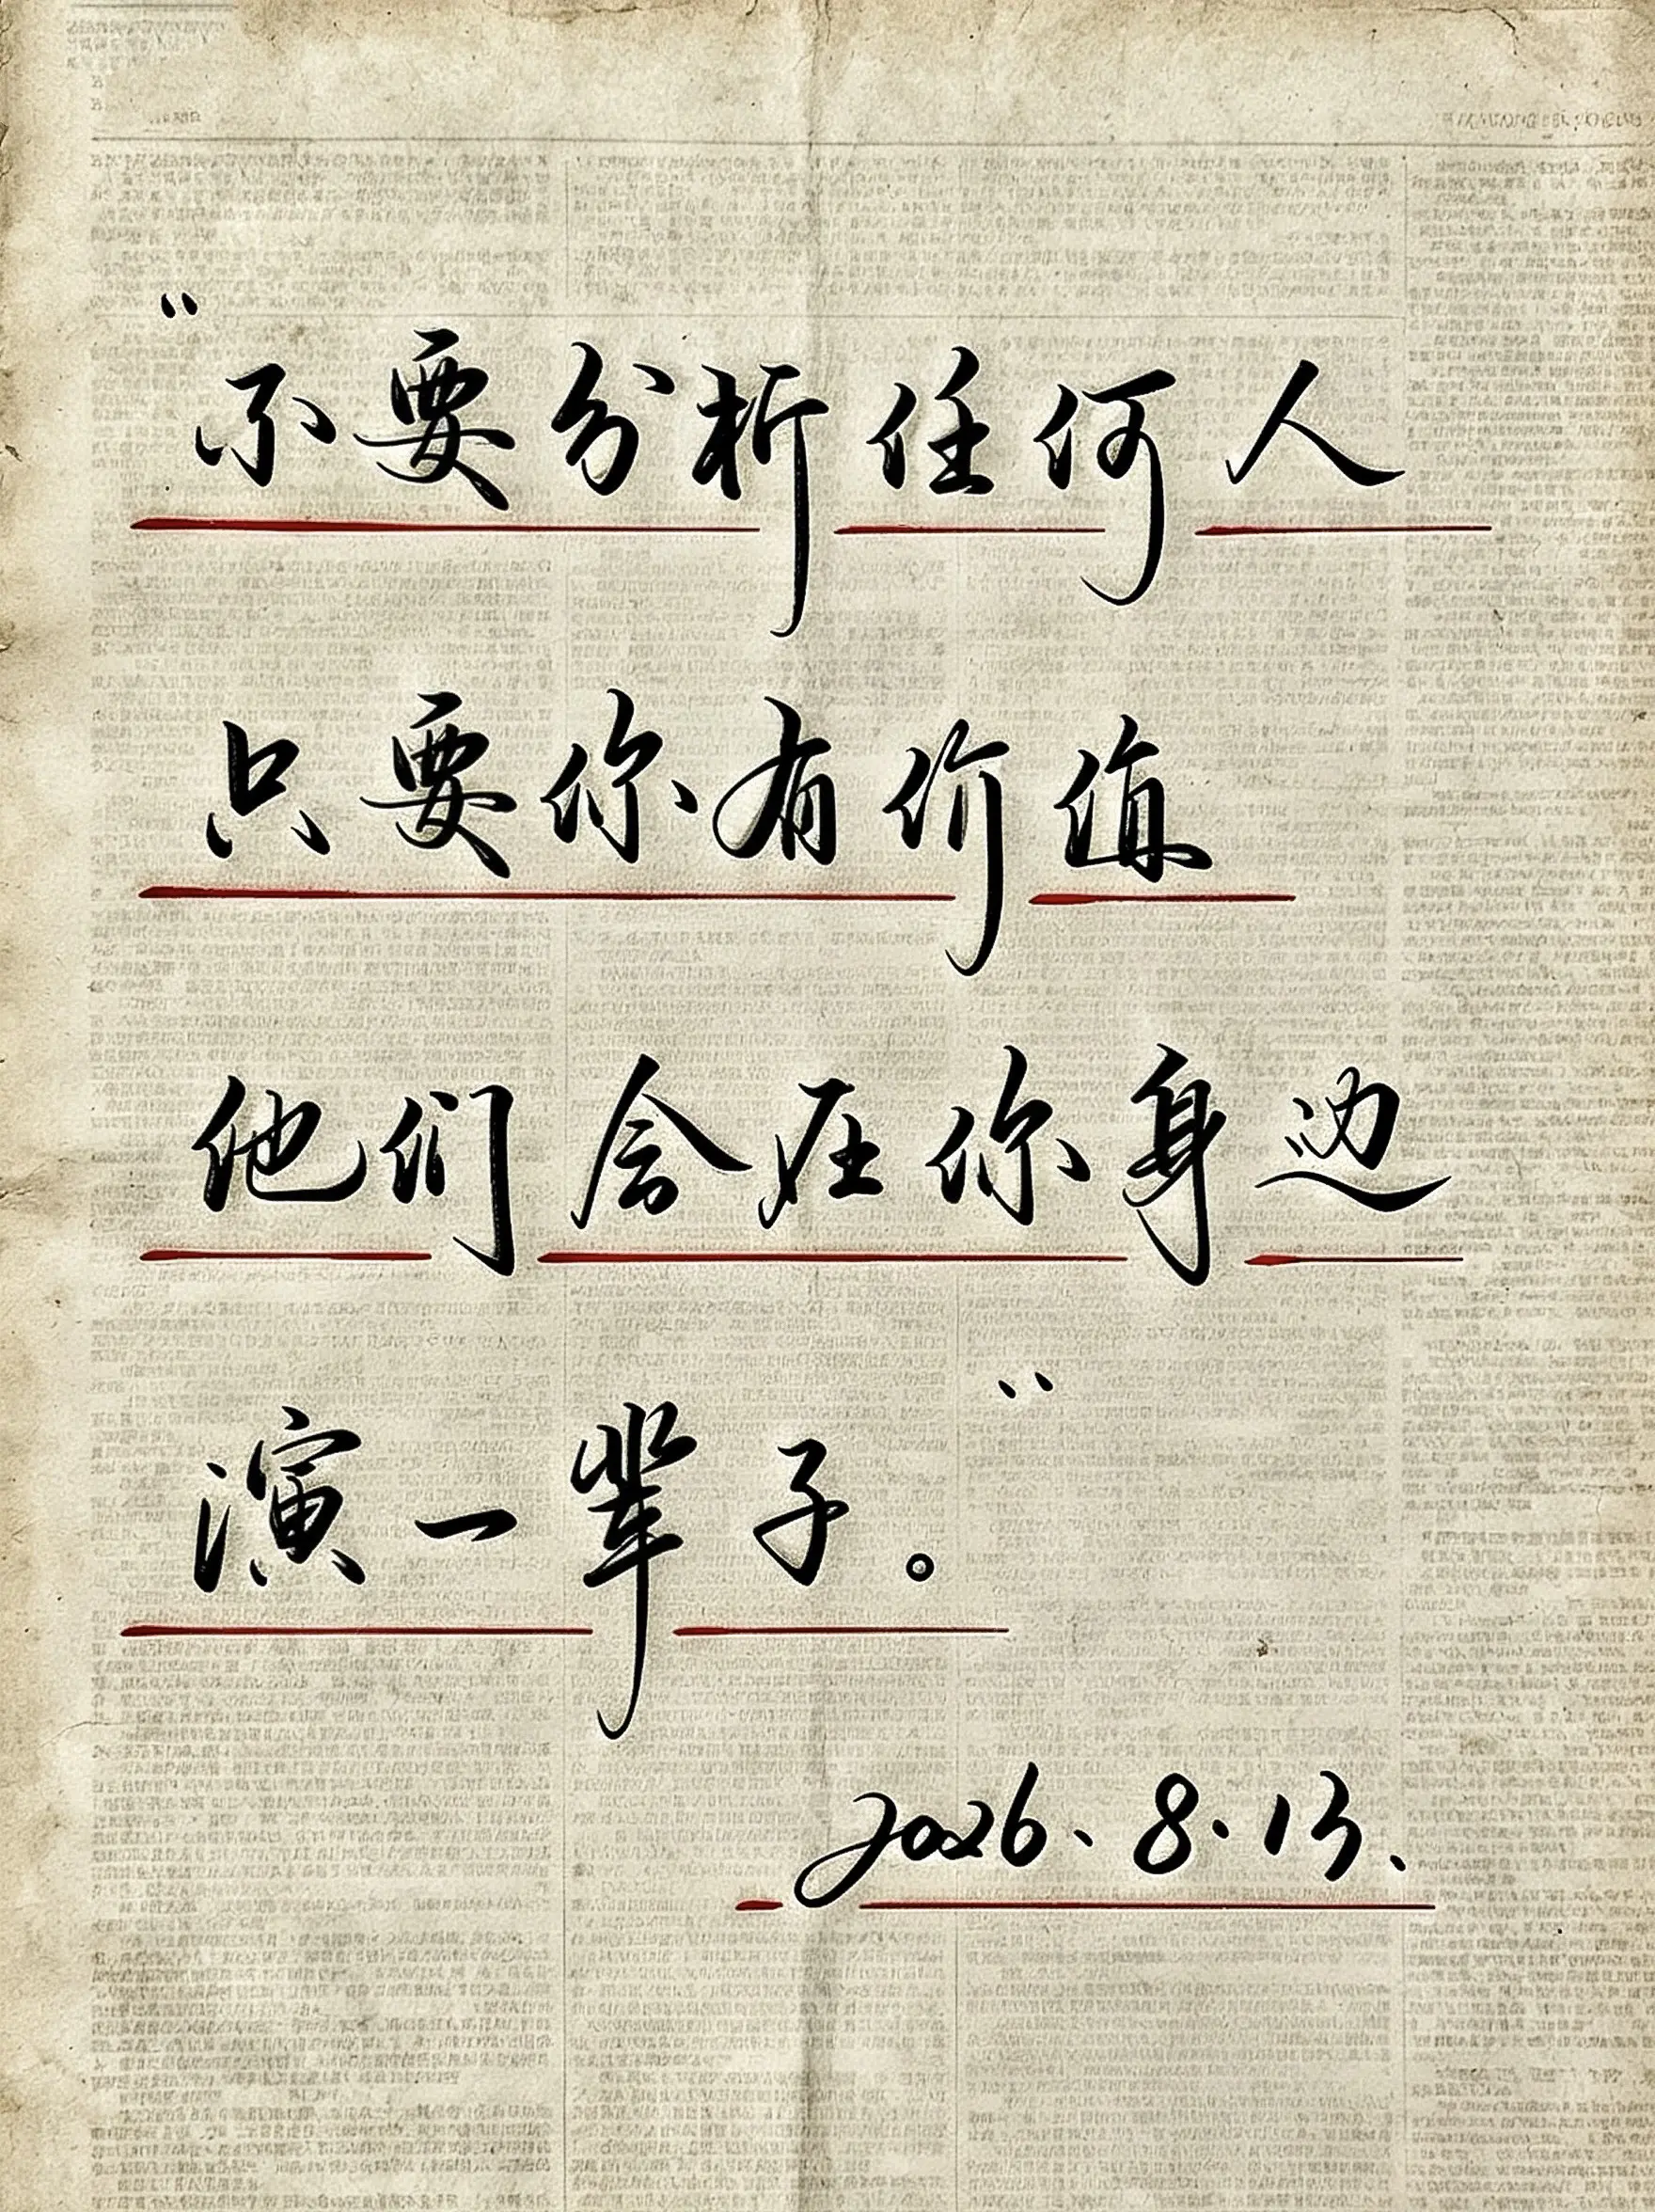 “不要分析任何人
只要你有价值
他们会在你身边
演一辈子。”
2026.8.13.